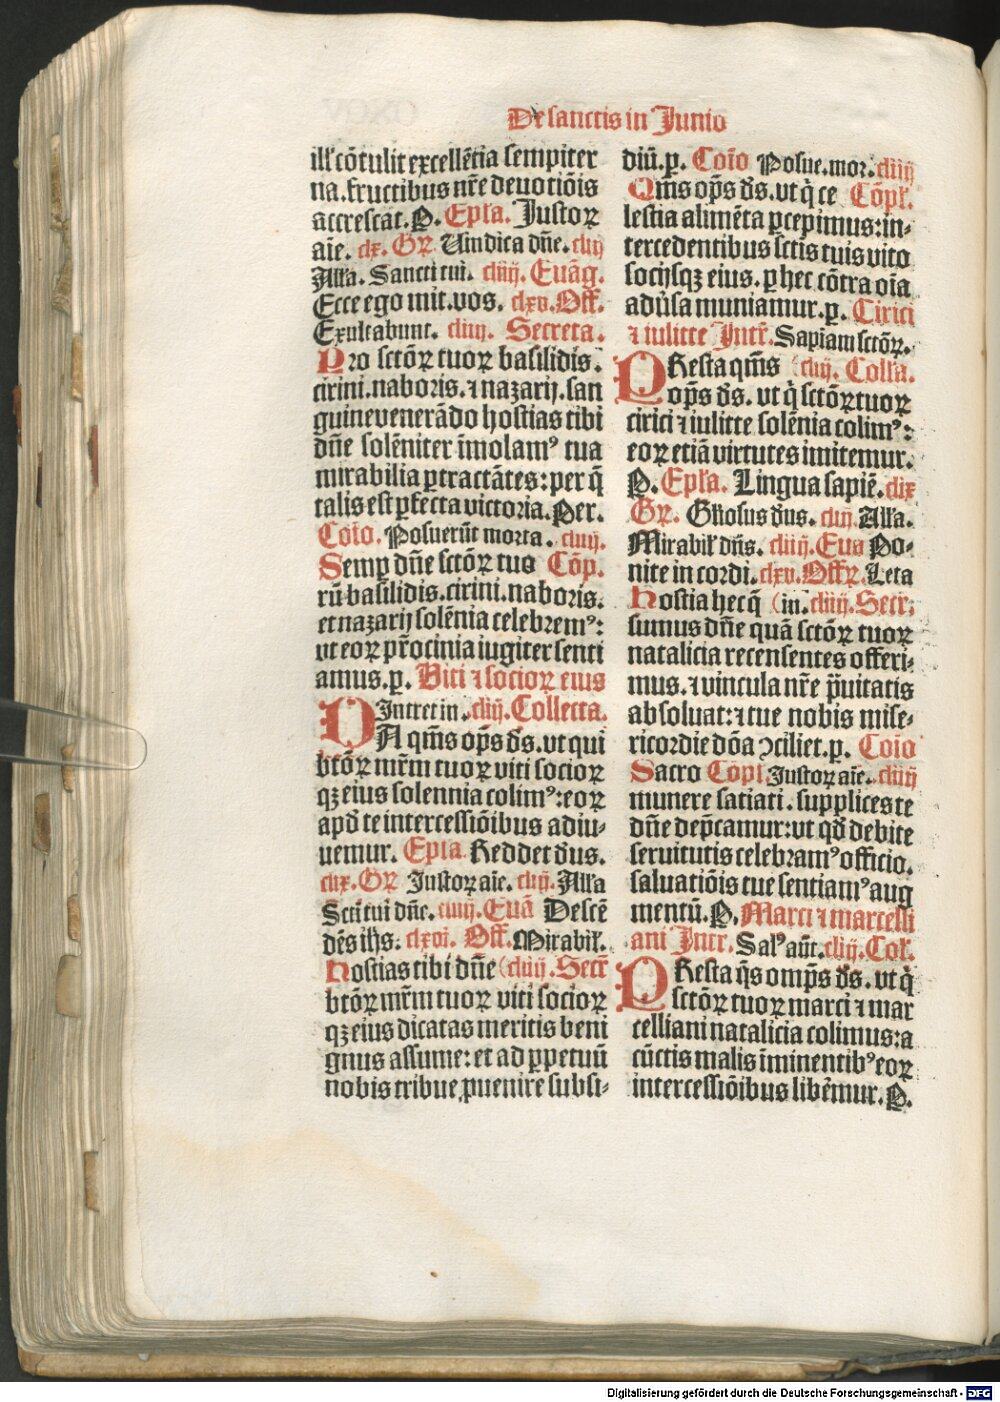 De sanctis in Junio
ill' cōtulit excellētia sempiter
na. fructibus nr̄e deuotiōis
accrescat. P. Ep̄la. Justoꝝ
aīe. clx. Gꝝ Uindica dn̄e. clij
All'a. Sancti tui. cliiij. Euāg.
Ecce ego mit. vos. clxv. Off.
Exultabunt. cliiij. Secreta.
Pro sctōꝝ tuoꝝ basilidis.
cirini. naboris. ⁊ nazarij. san
guine venerādo hostias tibi
dn̄e solēniter īmolamꝰ tua
mirabilia ꝑtractātes: per q̄
talis est ꝑfecta victoria. Per.
Coīo. Posuerūt morta. cliiij.
Semꝑ dn̄e sctōꝝ tuo Cōp.
rū basilidis. cirini. naboris.
et nazarij solēnia celebremꝰ:
vt eoꝝ pr̄ocinia iugiter senti
amus. p. Viti ⁊ socioꝝ eius
Intret in. cliij. Collecta.
DA qm̄s op̄s ds̄. vt qui
btōꝝ mr̄m tuoꝝ viti socioꝝ
qꝫ eius solennia colimꝰ: eoꝝ
apd̄ te intercessiōibus adiu-
uemur. Epl̄a Reddet dus.
clix. Gꝝ Justoꝝ aīe. clij. All'a
Scti tui dn̄e. cliiij. Euā Descē
dēs ihs̄. clxvi. Off. Mirabil'.
Hostias tibi dn̄e (cliiij. Secr̄
btōꝝ mr̄m tuoꝝ viti socioꝝ
qꝫ eius dicatas meritis beni
gnus assume: et ad ꝑpetuū
nobis tribue ꝓuenire subsi-
diū. p. Coīo Posue. mor. cliiij
Qm̄s op̄s ds̄. vt q̄ ce Cōpl'.
lestia alimēta ꝑcepimus: in-
tercedentibus sctis tuis vito
socijsqꝫ eius. ꝑ hec cōtra oīa
adūsa muniamur. p. Cirici
⁊ iulitte Intr̄. Sapiam sctōꝝ.
PResta qm̄s (cliij. Coll'a.
op̄s ds̄. vt q̄ sctōꝝ tuoꝝ
cirici ⁊ iulitte solēnia colimꝰ:
eoꝝ etiā virtutes imitemur.
P. Ep̄la. Lingua sapiē. clix
Gꝝ. Gl'iosus dus. clij. All'a.
Mirabil' dn̄s. cliiij. Eua Po-
nite in cordi. clxv. Offꝝ. Leta
Hostia hec q̄ (in. cliiij. Secr:
sumus dn̄e quā sctōꝝ tuoꝝ
natalicia recensentes offeri-
mus. ⁊ vincula nr̄e p̄uitatis
absoluat: ⁊ tue nobis mise-
ricordie dōa ꝯciliet. p. Coīo
Sacro Cōpl Justoꝝ aīe. cliiij
munere satiati. supplices te
dn̄e dep̄camur: vt qd̄ debite
seruitutis celebramꝰ officio.
saluatiōis tue sentiamꝰ aug
mentū. P. Marci ⁊ marcelli
ani Intr. Salꝰ aūt. cliij. Col'.
PResta q̄s omp̄s ds̄. vt q̄
sctōꝝ tuoꝝ marci ⁊ mar
celliani natalicia colimus: a
cūctis malis īminentibꝰ eoꝝ
intercessiōibus libēmur. P.
Digitalisierung gefördert durch die Deutsche Forschungsgemeinschaft - DFG